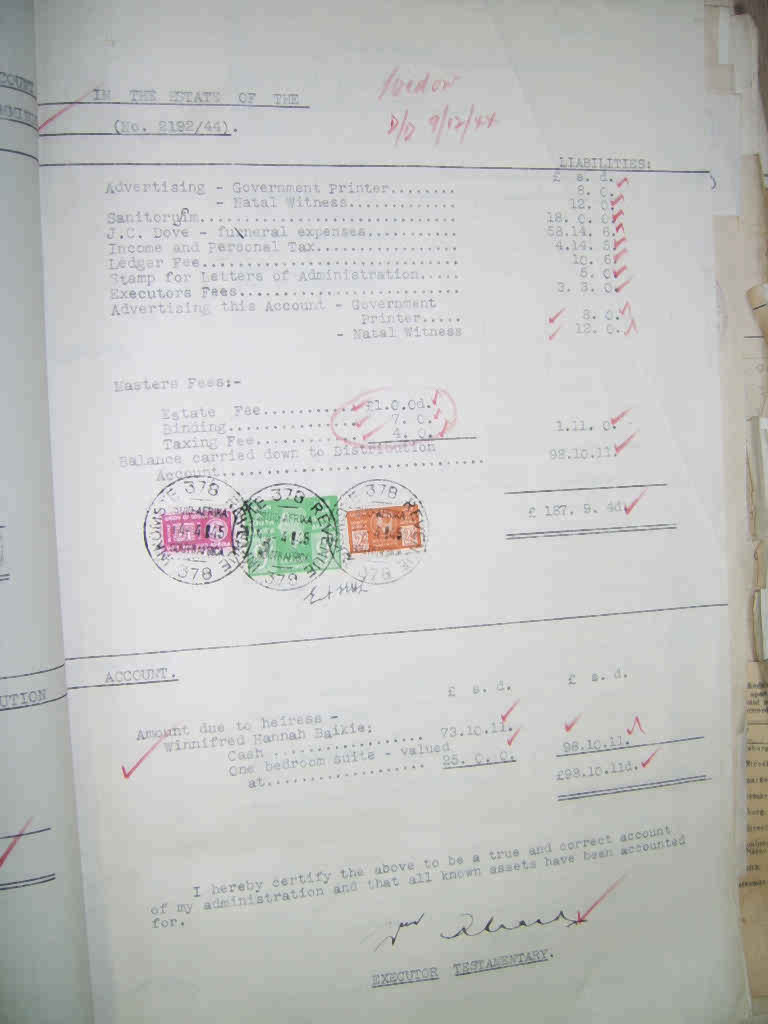 IN THE ESTATE OF THE
(No. 2192/44).
D/D 9/12/44
LIABILITIES:
£ s. d.
Advertising - Government Printer........ 8. 0.
- Natal Witness............. 12. 0.
Sanitorym................................ 18. 0. 0.
J.C. Dove - funneral expenses........... 58.14. 6.
Income and Personal Tax.................. 4.14. 5.
Ledger Fee............................... 10. 6.
Stamp for Letters of Administration..... 5. 0.
Executors Fees........................... 3. 3. 0.
Advertising this Account - Government
Printer..... 8. 0.
- Natal Witness 12. 0.
Masters Fees:-
Estate Fee........... £1.0.0d.
Binding............... 7. 0.
Taxing Fee............ 4. 0. 1.11. 0.
Balance carried down to Distribution
Account............................... 98.10.11.
£ 187. 9. 4d.
378 REVENUE 378
SUID-AFRIKA
SOUTH AFRICA
378 REVENUE 378
SUID-AFRIKA
SOUTH AFRICA
378 REVENUE 378
ACCOUNT.
£ s. d. £ s. d.
Amount due to heiress -
Winnifred Hannah Baikie:
Cash .................. 73.10.11.
One bedroom suite - valued
at.................... 25. 0. 0. 98.10.11.
£98.10.11d.
I hereby certify the above to be a true and correct account
of my administration and that all known assets have been accounted
for.
EXECUTOR TESTAMENTARY.